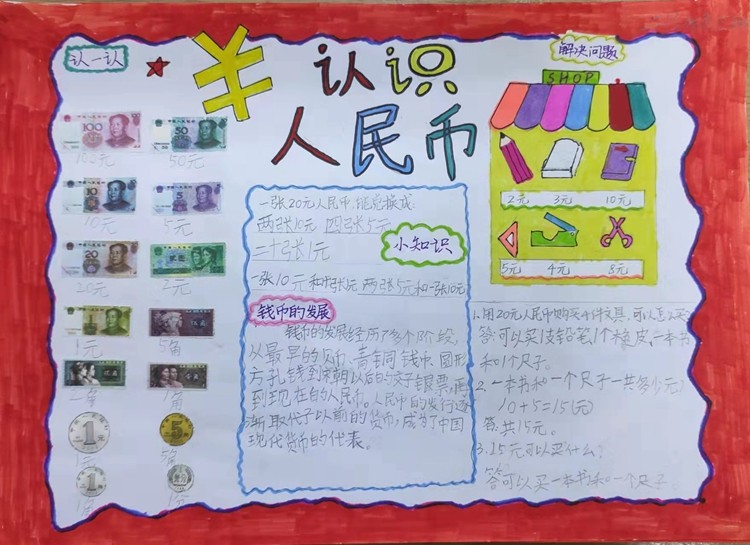 认一认
100元 50元
10元 5元
20元 2元
1元 5角
2角 1角
1元 5角
1角 1分
认识
人民币
一张20元人民币,能兑换成:
两张10元 四张5元
二十张1元
小知识
一张10元和十张1元 两张5元和一张10元
钱币的发展
钱币的发展经历了多个阶段,
以最早的贝币、青铜钱币、圆形
方孔钱到宋朝以后的交子、银票,再
到现在的人民币。人民币的发行逐
渐取代了以前的货币,成为了中国
现代货币的代表。
解决问题
SHOP
2元 3元 10元
5元 4元 8元
1.用20元人民币购买4件文具,可以怎么买?
答:可以买1支铅笔,1个橡皮,一本书
和1个尺子。
2.一本书和一个尺子一共多少元?
10+5=15(元)
答:共15元。
3.15元可以买什么?
答:可以买一本书和一个尺子